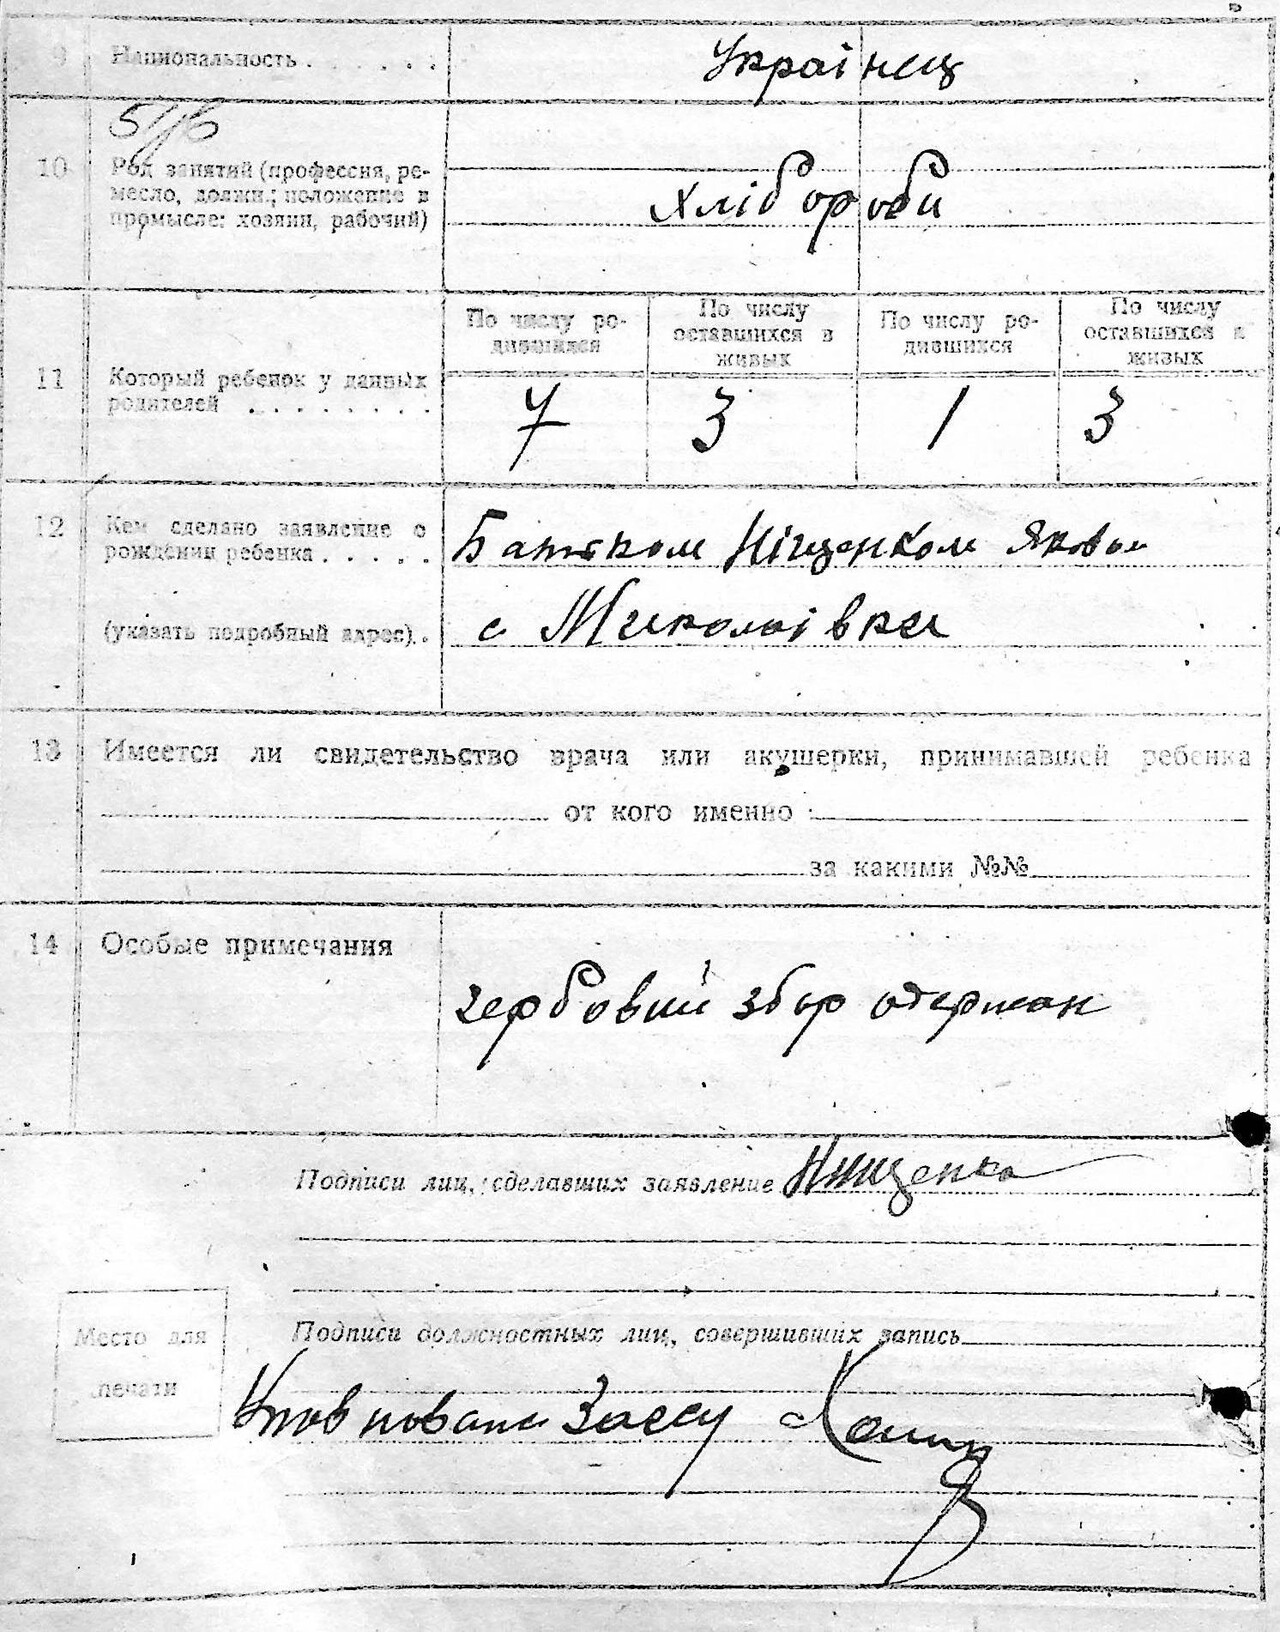 9 Национальность . . . . . . Українец
10 Род занятий (профессия, ре-
месло, должн.; положение в
промысле: хозяин, рабочий)
Хлібороби
По числу ро-
дившихся
По числу
оставшихся в
живых
По числу ро-
дившихся
По числу
оставшихся в
живых
11 Который ребенок у данных
родителей . . . . . . . .
7 3 1 3
12 Кем сделано заявление о
рождении ребенка . . . . .
Батьком Ніщенком Яковом
(указать подробный адрес). .
с Миколаівки
13 Имеется ли свидетельство врача или акушерки, принимавшей ребенка
от кого именно
за какими №№
14 Особые примечания
гербовий збір одержан
Подписи лиц, сделавших заявление Нищенко
Подписи должностных лиц, совершивших запись
Место для
печати
Загсу